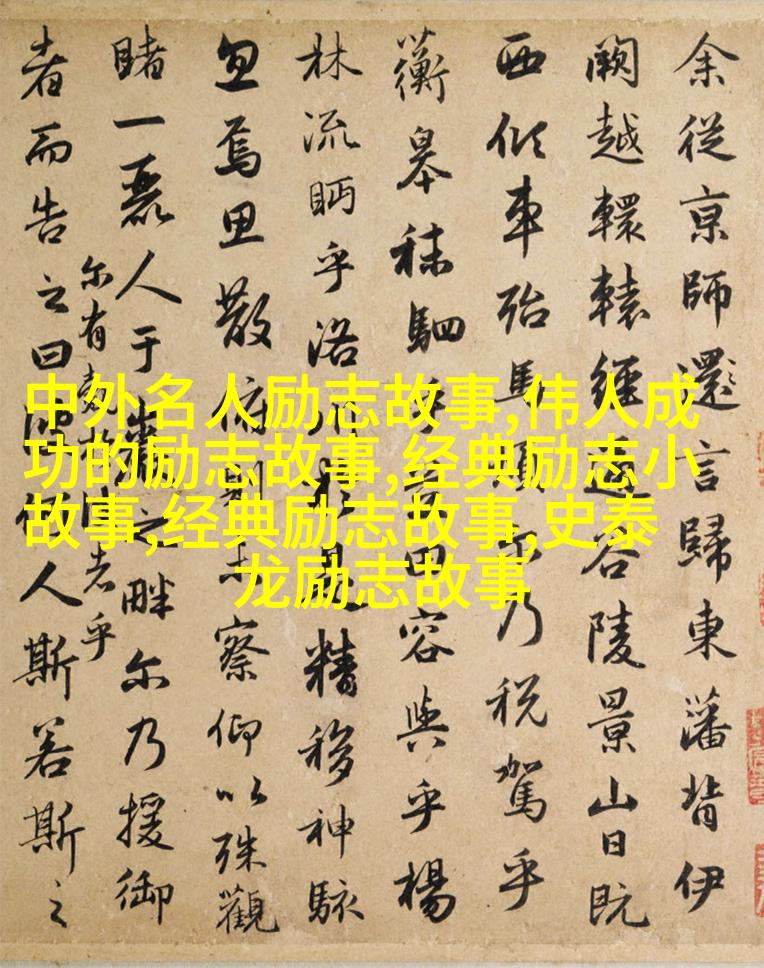 中外名人励志故事,伟人成
功的励志故事,经典励志小
故事,经典励志故事,史泰
龙励志故事
余從京師還言歸東藩背伊
闕越轘轅經通谷陵景山日既
西傾車殆馬煩尔乃税駕乎
蘅皋秣駟乎芝田容與乎楊
林流眄乎洛川於是精移神駭
忽焉思散俯則未察仰以殊觀
睹一麗人于巖之畔尔乃援御
尔有覿者乎
者而告之曰彼何人斯若斯之